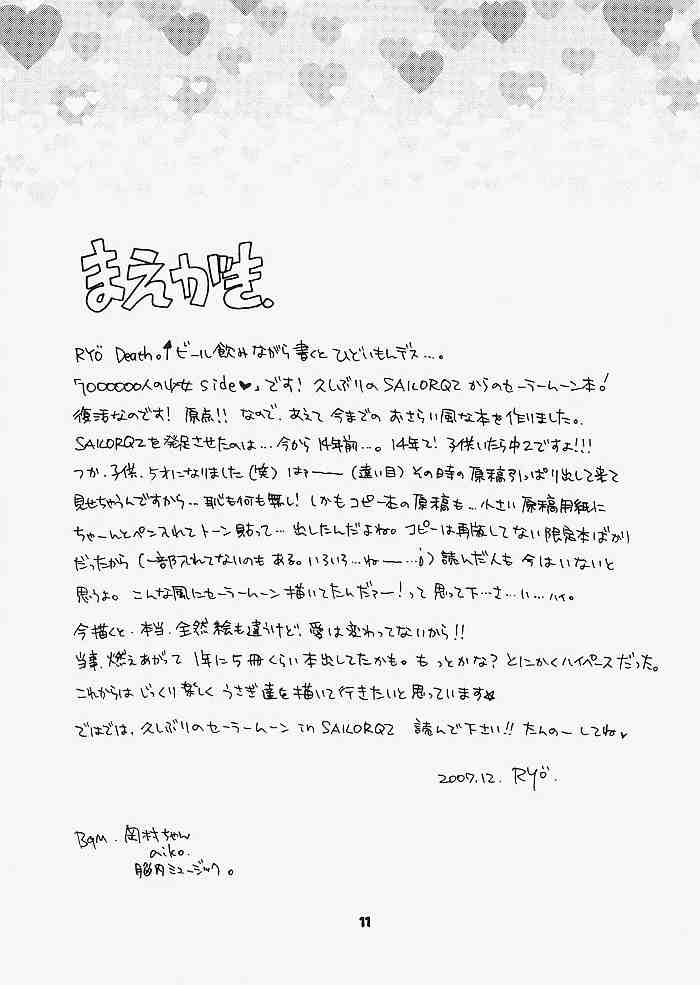 まえがき.
RYÖ Death。↑ビール飲みながら書くとひどいもんデス…。
7000000人の少女side♥」です! 久しぶりのSAILORQ2からのセーラームーン本!
復活なのです! 原点!! なので、あえて今までのおさらい風な本を作りました。
SAILORQ2を発足させたのは…今から14年前…。14年て! 子供いたら中2ですよ!!!
つか、子供、5才になりました(笑)はァーー(遠い目)その時の原稿引っぱり出して来て
見せちゃうんですから…恥も何も無し! しかもコピー本の原稿も…小さい原稿用紙に
ちゃーんとペン入れてトーン貼って…出したんだよね。コピーは再版してない限定本ばかり
だったから(一部入れてないのもある。いろいろ…ねー…)読んだ人も今はいないと
思うよ。こんな風にセーラームーン描いてたんだァー!って思って下…さ…い…ハイ。
今描くと、本当、全然絵も違うけど、愛は変わってないから!!
当事、燃えあがって1年に5冊くらい本出してたかも。もっとかな? とにかくハイペースだった。
これからはじっくり楽しくうさぎ達を描いて行きたいと思っています☆
ではでは、久しぶりのセーラームーン in SAILORQ2 読んで下さい!! たんのーしてね♥
2007.12. RYÖ.
BGM. 岡村ちゃん
aiko.
脳内ミュージック。
11